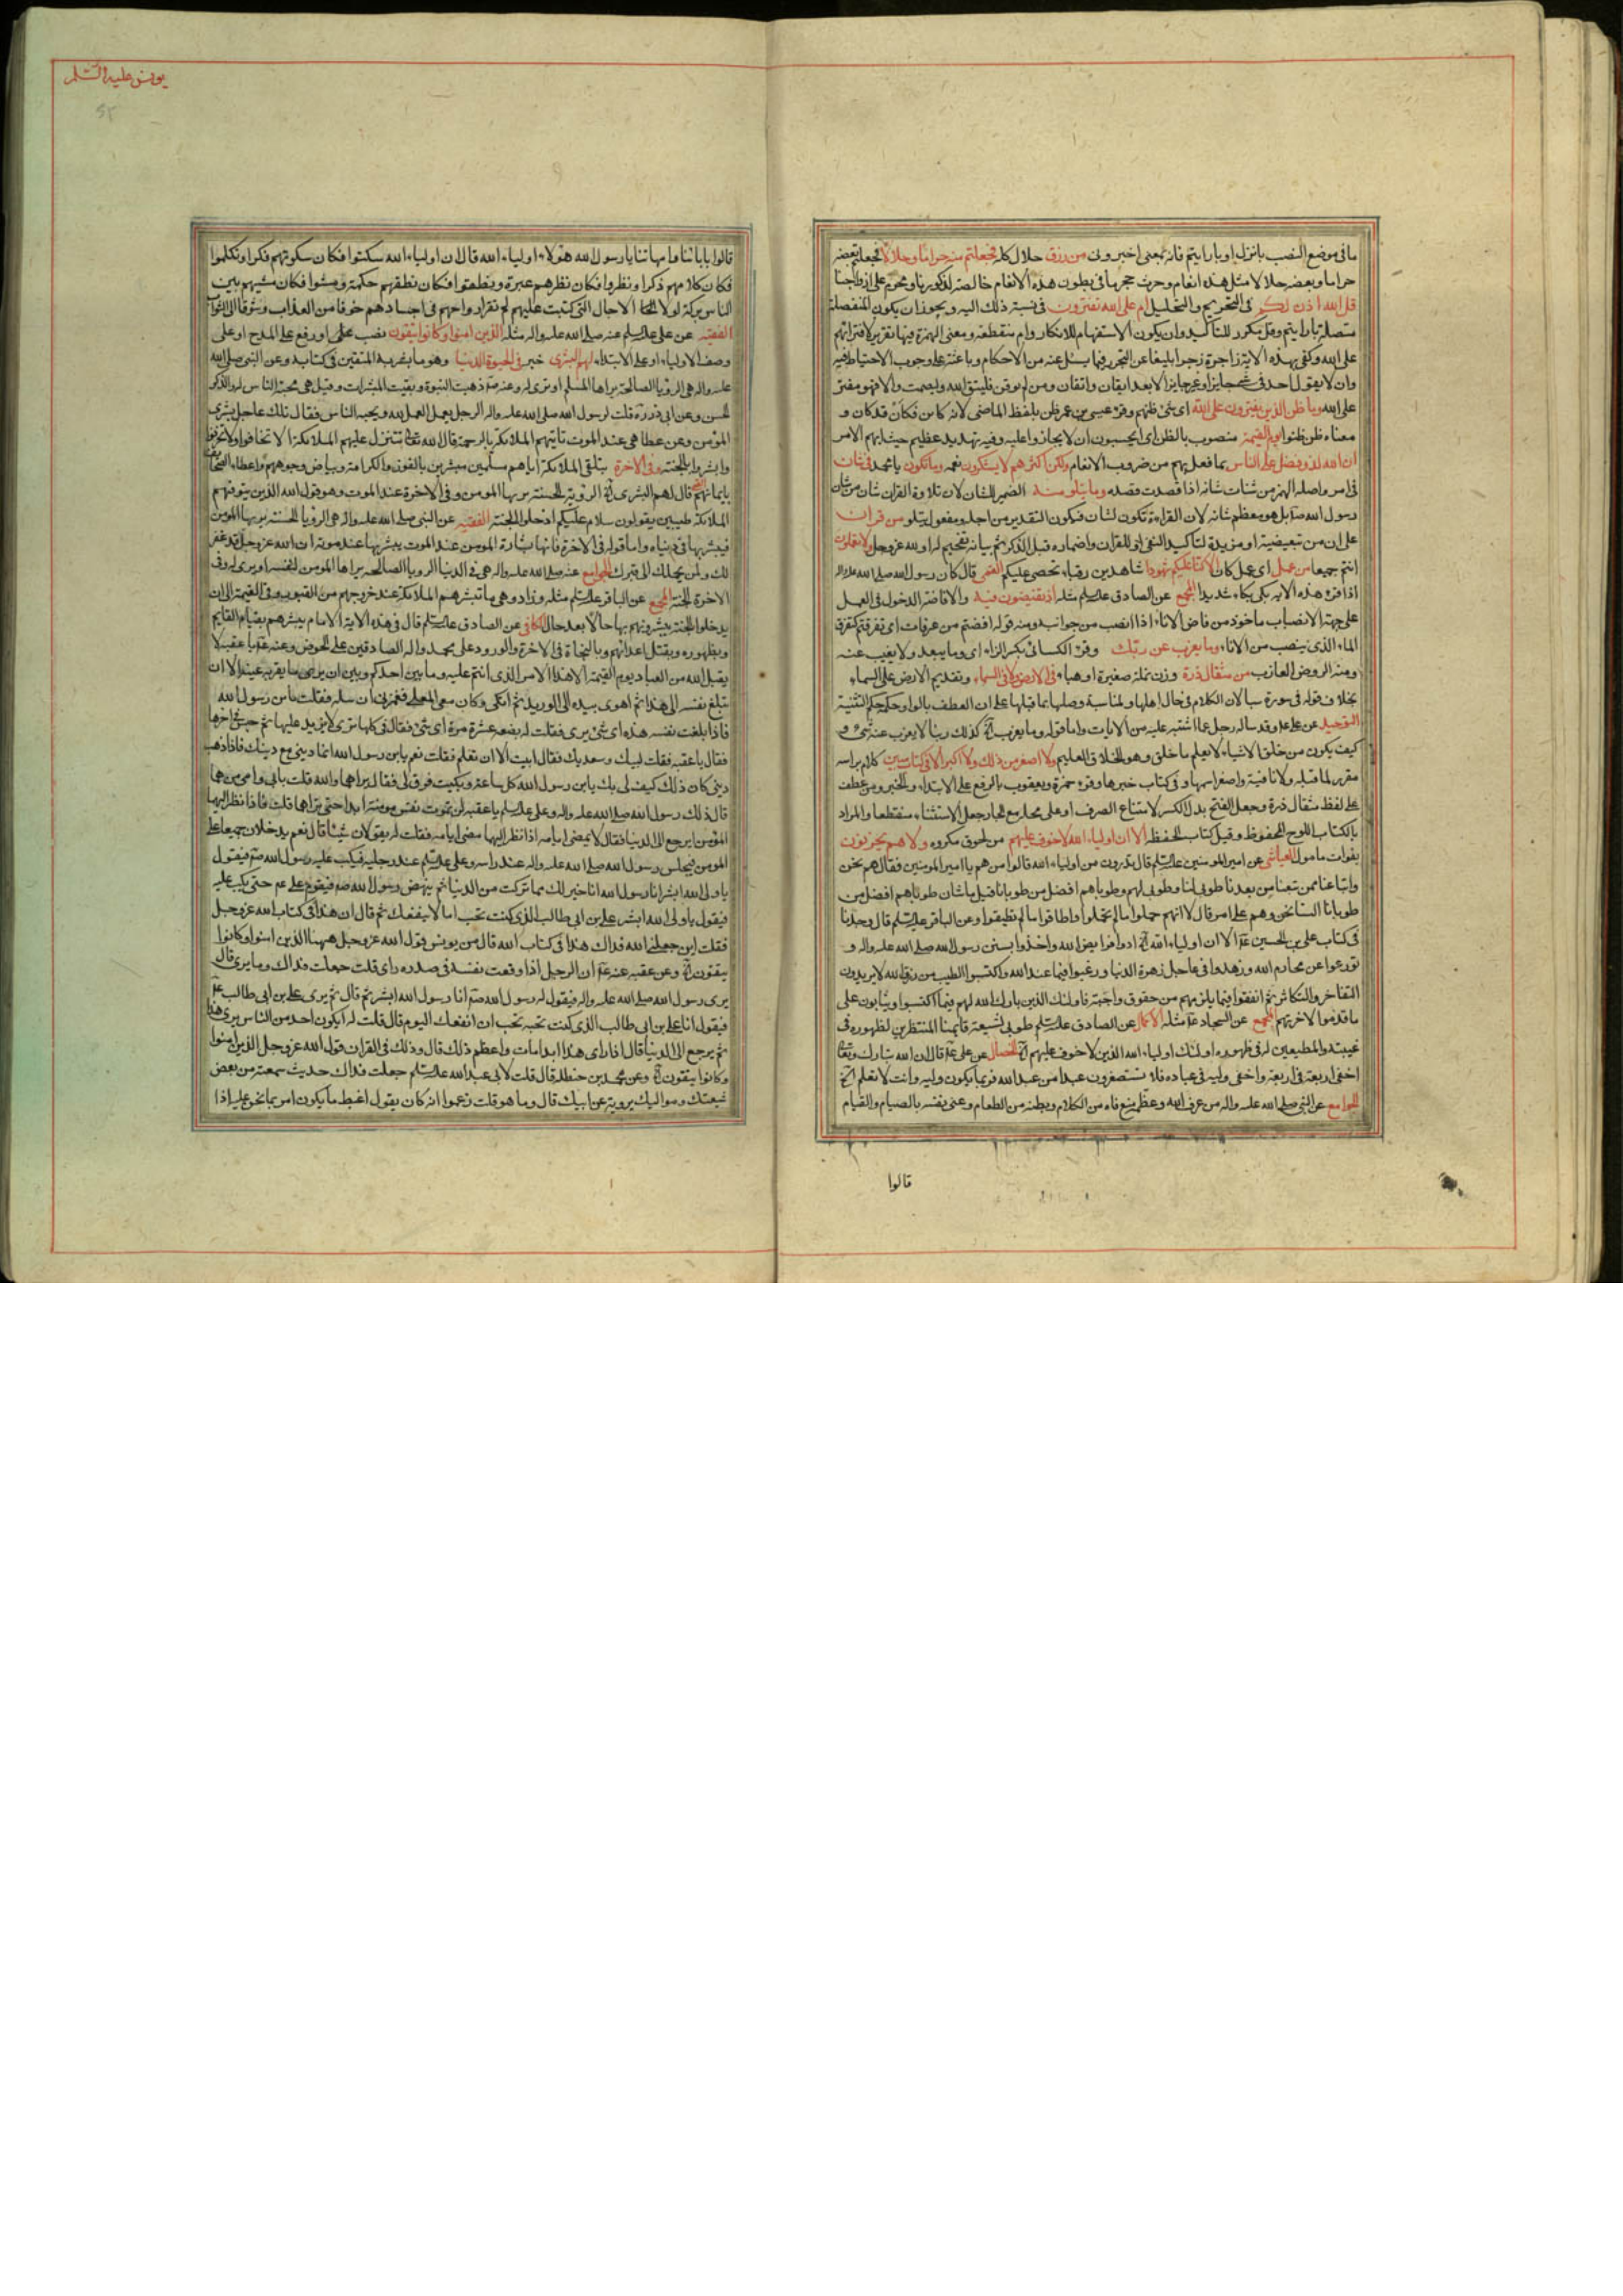 ما فى موضع النصب بانزل او بارايتم فانه بمعنى اخبرونى من رزق حلال كله فجعلتم منه حراما وحلالا فجعلتم بعضه
حراما وبعضه حلالا مثل هذه انعام وحرث حجر ما فى بطون هذه الانعام خالصة لذكورنا ومحرم على ازواجنا
قل الله اذن لكم فى التحريم والتحليل ام على الله تفترون فى نسبة ذلك اليه ويجوز ان يكون المنفصلة
متصلة بارايتم وقل مكرر للتاكيد وان يكون الاستفهام للانكار وام منقطعة ومعنى الهمزة فيها تقرير لافترائهم
على الله وكفى بهذه الاية زاجرة زجرا بليغا عن التجوز فيما يسئل عنه من الاحكام وباعثة على وجوب الاحتياط فيه
وان لا يقول احد فى شئ جايز او غير جايز الا بعد ايقان واتقان ومن لم يوقن فليتق الله وليصمت والا فهو مفتر
على الله وما ظن الذين يفترون على الله اى شئ ظنهم وقرء عيسى بن عمر ظن بلفظ الماضى لانه كاين فكان قد كان و
معناه ظن ظنوا يوم القيمة منصوب بالظن اى ايحسبون ان لا يجازوا عليه وفيه تهديد عظيم حيث ابهم الامر
ان الله لذو فضل على الناس بما فعل بهم من ضروب الانعام ولكن اكثرهم لا يشكرون نعمه وما تكون يا محمد فى شان
فى امر واصله الهمز من شئات شانه اذا قصدت قصده وما تتلو منه الضمير للشان لان تلاوة القران شان من شان
رسول الله صم بل هو معظم شانه لان القراءة تكون لشان فيكون التقدير من اجله ومفعول يتلو من قران
على ان من تبعيضية او مزيدة لتاكيد النفى او للقران واضماره قبل الذكر ثم بيانه تفخيم له او لله عز وجل ولا تعملون
انتم جميعا من عمل اى عمل كان الا كنا عليكم شهودا شاهدين رقباء نحصى عليكم القمى قال كان رسول الله صلى الله عليه واله
اذا قرء هذه الاية بكى بكاء شديدا المجمع عن الصادق عليه السلم مثله اذ تفيضون فيه والافاضة الدخول فى العمل
على جهة الانصباب ماخوذ من فاض الاناء اذا انصب من جوانبه ومنه قوله افضتم من عرفات اى تفرقتم كتفرق
الماء الذى ينصب من الاناء وما يعزب عن ربك وقرء الكسائى بكسر الزاء اى وما يبعد ولا يغيب عنه
ومنه الروض العازب من مثقال ذرة وزن نملة صغيرة او هباء فى الارض ولا فى السماء وتقديم الارض على السماء
بخلاف قوله فى سورة سبا لان الكلام فى حال اهلها ولمناسبة وصلها بما قبلها على ان العطف بالواو حكمه حكم التثنية
التوحيد عن على عم وقد ساله رجل عما اشتبه عليه من الايات واما قوله وما يعزب آه كذلك ربنا لا يعزب عنه شئ و
كيف يكون من خلق الاشياء لا يعلم ما خلق وهو الخلاق العليم ولا اصغر من ذلك ولا اكبر الا فى كتاب مبين كلام براسه
مقرر لما قبله ولا نافية واصغر اسمها وفى كتاب خبرها وقرء حمزة ويعقوب بالرفع على الابتداء والخبر ومن عطف
على لفظ مثقال ذرة وجعل الفتح بدل الكسر لامتناع الصرف او على محله مع الجار جعل الاستثناء منقطعا والمراد
بالكتاب اللوح المحفوظ وقيل كتاب الحفظ الا ان اولياء الله لا خوف عليهم من لحوق مكروه ولا هم يحزنون
بفوات مامول العياشى عن امير المومنين عليه السلم قال تدرون من اولياء الله قالوا من هم يا امير المومنين فقال هم نحن
واتباعنا ممن تبعنا من بعدنا طوبى لنا وطوبى لهم وطوباهم افضل من طوبانا قيل ما شان طوباهم افضل من
طوبانا السنا نحن وهم على امر قال لا انهم حملوا ما لم تحملوا واطاقوا ما لم تطيقوا وعن الباقر عليه السلم قال وجدنا
فى كتاب على بن الحسين عم الا ان اولياء الله آه اذا ادوا فرايض الله واخذوا بسنن رسول الله صلى الله عليه واله و
تورعوا عن محارم الله وزهدوا فى عاجل زهرة الدنيا ورغبوا فيما عند الله واكتسبوا الطيب من رزق الله لا يريدون
التفاخر والتكاثر ثم انفقوا فيما يلزمهم من حقوق واجبة فاولئك الذين بارك الله لهم فيما اكتسبوا ويثابون على
ما قدموا لاخرتهم المجمع عن السجاد عم مثله الاكمال عن الصادق عليه السلم طوبى لشيعة قايمنا المنتظرين لظهوره فى
غيبته والمطيعين له فى ظهوره اولئك اولياء الله الذين لا خوف عليهم آه الخصال عن على عم قال ان الله تبارك وتعالى
اخفى اربعة فى اربعة واخفى وليه فى عباده فلا تستصغرون عبدا من عبيد الله فربما يكون وليه وانت لا تعلم الخ
الجوامع عن النبى صلى الله عليه واله من عرف الله وعظمه منع فاه من الكلام وبطنه من الطعام وعنى نفسه بالصيام والقيام
قالوا
يونس عليه السلم
قالوا بابائنا وامهاتنا يا رسول الله هؤلاء اولياء الله قال ان اولياء الله سكتوا فكان سكوتهم فكرا وتكلموا
فكان كلامهم ذكرا ونظروا فكان نظرهم عبرة ونطقوا فكان نطقهم حكمة ومشوا فكان مشيهم بين
الناس بركة لولا الاجال التى كتبت عليهم لم تقر ارواحهم فى اجسادهم خوفا من العذاب وشوقا الى الثواب
الفقيه عن على عليه السلم عنه صلى الله عليه واله مثله الذين امنوا وكانوا يتقون نصب على او رفع على المدح او على
وصف الاولياء او على الابتداء لهم البشرى خبره فى الحيوة الدنيا وهو ما بشر به المتقين فى كتابه وعن النبى صلى الله
عليه واله هى الرؤيا الصالحة يراها المسلم او ترى له وعنه صم ذهبت النبوة وبقيت المبشرات وقيل هى محبة الناس له والذكر
الحسن وعن ابى ذر ره قلت لرسول الله صلى الله عليه واله الرجل يعمل العمل لله ويحبه الناس فقال تلك عاجل بشرى
المؤمن وعن عطا هى عند الموت تاتيهم الملائكة بالرحمة قال الله تعالى تتنزل عليهم الملائكة الا تخافوا ولا تحزنوا
وابشروا بالجنة وفى الاخرة بتلقى الملائكة اياهم مسلمين مبشرين بالفوز والكرامة وبياض وجوههم واعطاء الصحايف
بايمانهم قال لهم البشرى آه الرؤية الحسنة يريها المومن وفى الاخرة عند الموت وهو قول الله الذين يتوفيهم
الملائكة طيبين يقولون سلام عليكم ادخلوا الجنة الفقيه عن النبى صلى الله عليه واله هى الرؤيا الحسنة يريها المومن
فيبشر بها فى دنياه واما قوله فى الاخرة فانها بشارة المومن عند الموت يبشر بها عند موته ان الله عز وجل قد غفر
لك ولمن يحملك الى قبرك الجوامع عنه صلى الله عليه واله هى فى الدنيا الرويا الصالحة يراها المومن لنفسه او يرى له وفى
الاخرة الجنة المجمع عن الباقر عليه السلم مثله وزاد وهى ما تبشرهم الملائكة عند خروجهم من القبور وفى القيمة الى ان
يدخلوا الجنة يبشرونهم بها حالا بعد حال الكافى عن الصادق عليه السلم قال فى هذه الاية الامام يبشرهم بقيام القايم
وبظهوره وبقتل اعدائهم وبالنجاة فى الاخرة والورود على محمد واله الصادقين على الحوض وعنه عم يا عقبة لا
يقبل الله من العباد يوم القيمة الا هذا الامر الذى انتم عليه وما بين احدكم وبين ان يرى ما يقر به عينه الا ان
تبلغ نفسه الى هذا ثم اهوى بيده الى الوريد ثم اتكى وكان معى المعلى فغمزنى ان سله فقلت يابن رسول الله
فاذا بلغت نفسه هذه اى شئ يرى فقلت له بضعة عشرة مرة اى شئ فقال فى كلها يرى لا يزيد عليها ثم جلس فى اخرها
فقال يا عقبة فقلت لبيك وسعديك فقال ابيت الا ان تعلم فقلت نعم يابن رسول الله انما دينى مع دينك فاذا ذهب
دينى كان ذلك كيف لى بك يابن رسول الله كل ساعة وبكيت فرق لى فقال يراهما والله قلت بابى وامى من هما
قال ذلك رسول الله صلى الله عليه واله وعلى عليه السلم يا عقبة لن تموت نفس مومنة ابدا حتى تراهما قلت فاذا نظر اليهما
المؤمن ايرجع الى الدنيا فقال لا يمضى امامه اذا نظر اليهما مضى امامه فقلت له يقولان شيئا قال نعم يدخلان جميعا على
المومن فيجلس رسول الله صلى الله عليه واله عند راسه وعلى عليه السلم عند رجليه فيكب عليه رسول الله صم فيقول
يا ولى الله ابشر انا رسول الله انا خير لك مما تركت من الدنيا ثم ينهض رسول الله صم فيقوم على عم حتى يكب عليه
فيقول يا ولى الله ابشر على بن ابى طالب الذى كنت تحب اما لانفعنك ثم قال ان هذا فى كتاب الله عز وجل
فقلت اين جعلنى الله فداك هذا فى كتاب الله قال من يونس قول الله عز وجل ههنا الذين امنوا وكانوا
يتقون آه وعن عقبة عنه عم ان الرجل اذا وقعت نفسه فى صدره راى قلت جعلت فداك وما يرى قال
يرى رسول الله صلى الله عليه واله فيقول له رسول الله صم انا رسول الله ابشر ثم قال ثم يرى على بن ابى طالب عم
فيقول انا على بن ابى طالب الذى كنت تحبه تحب ان انفعك اليوم قال قلت له ايكون احد من الناس يرى هذا
ثم يرجع الى الدنيا قال اذا راى هذا ابدا مات واعظم ذلك قال وذلك فى القران قول الله عز وجل الذين امنوا
وكانوا يتقون آه وعن محمد بن حنظلة قال قلت لابى عبد الله عليه السلم جعلت فداك حديث سمعته من بعض
شيعتك ومواليك يرويه عن ابيك قال وما هو قلت زعموا انه كان يقول اغبط ما يكون امرؤ بما نحن عليه اذا